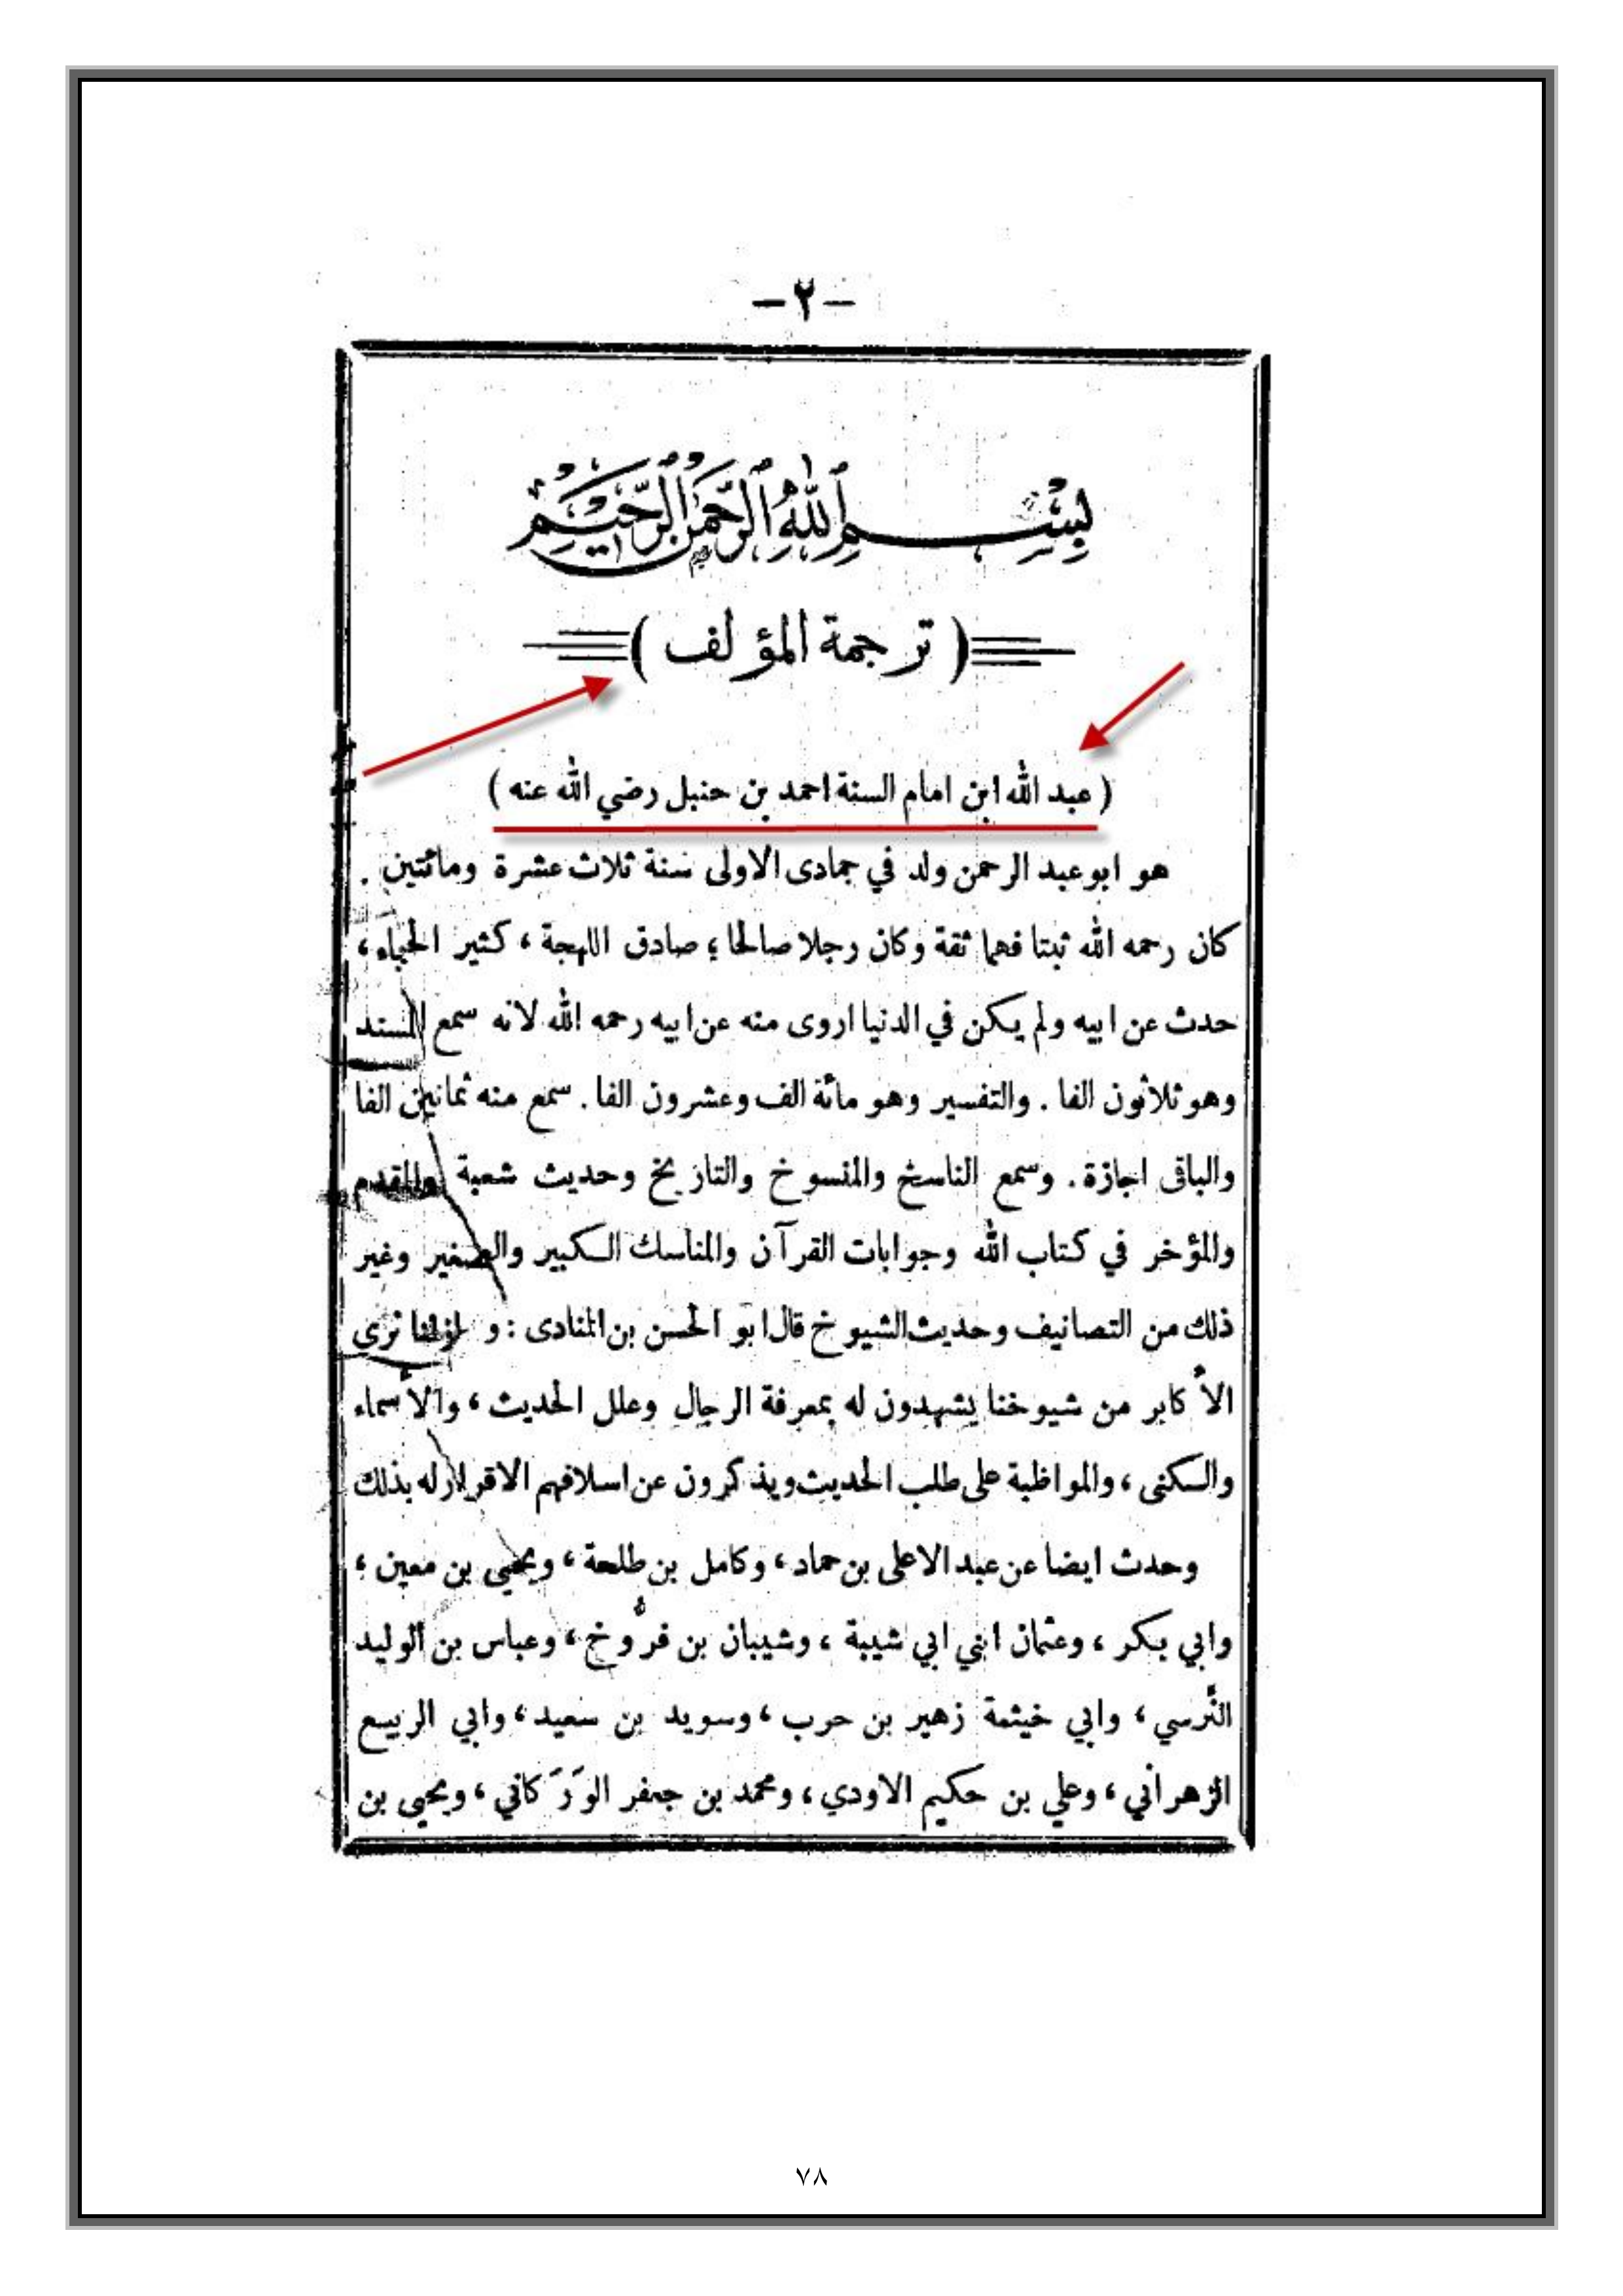 -٢-
بِسْمِ ٱللَّهِ ٱلرَّحْمَٰنِ ٱلرَّحِيمِ
( ترجمة المؤلف )
( عبد الله ابن امام السنة احمد بن حنبل رضي الله عنه )
هو ابو عبد الرحمن ولد في جمادى الاولى سنة ثلاث عشرة ومائتين .
كان رحمه الله ثبتا فهما ثقة وكان رجلا صالحا ؛ صادق اللهجة ، كثير الحياء ،
حدث عن ابيه ولم يكن في الدنيا اروى منه عن ابيه رحمه الله لانه سمع المسند
وهو ثلاثون الفا . والتفسير وهو مائة الف وعشرون الفا . سمع منه ثمانين الفا
والباقى اجازة . وسمع الناسخ والمنسوخ والتاريخ وحديث شعبة والمقدم
والمؤخر في كتاب الله وجوابات القرآن والمناسك الكبير والصغير وغير
ذلك من التصانيف وحديث الشيوخ قال ابو الحسن بن المنادى : و نرى
الأكابر من شيوخنا يشهدون له بمعرفة الرجال وعلل الحديث ، والأسماء
والكنى ، والمواظبة على طلب الحديث ويذكرون عن اسلافهم الاقرار له بذلك
وحدث ايضا عن عبد الاعلى بن حماد ، وكامل بن طلحة ، ويحيى بن معين ؛
وابي بكر ، وعثمان ابني ابي شيبة ، وشيبان بن فرُّوخ ، وعباس بن الوليد
النَّرسي ، وابي خيثمة زهير بن حرب ، وسويد بن سعيد ، وابي الربيع
الزهراني ، وعلي بن حكيم الاودي ، ومحمد بن جعفر الوَرَكاني ، ويحيى بن
٧٨